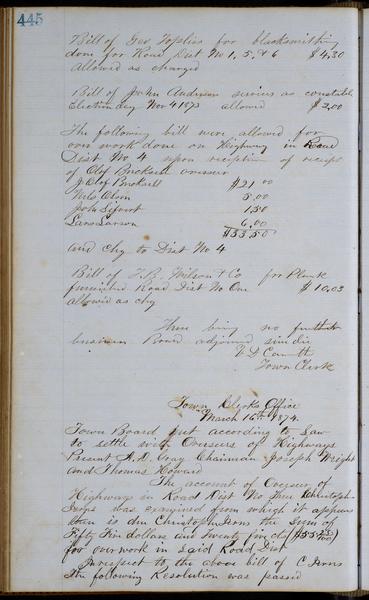 445
Bill of Geo Topliss for blacksmithing
done for Road Dist No 1, 5, & 6 $4,30
allowed as charged
Bill of John Anderson servics as constable
Election day Nov 4 1873 allowed $2,00
The following bill were allowed for
over work done on Highway in Road
Dist No 4 upon reception of receipt
of Olof Bucksell overseer
J Olof Bucksell $21 00
Nels Olson 5.00
John Sifvert 1.50
Lars Larson 6.00
$33.50
and chg to Dist No 4
Bill of T.B. Wilson & Co for Plank
furnished Road Dist No One $10,03
allowed as chg
There being no further
business Board adjourned sine die
Town Clerk
Town Clerks Office
March 16th 1874.
Town Board met according to Law
to settle with Overseers of Highways
Present A. D. Gray Chairman Joseph Wright
and Thomas Howard
The account of Overseer of
Highways in Road Dist No Three Christoph
Irens was examined from which it appears
there is due Christopher Irens the sum of
Fifty Five dollars and twenty five cts ($55 25/100)
for overwork in said Road Dist
In respect to the above bill of C Irens
the following Resolution was passed